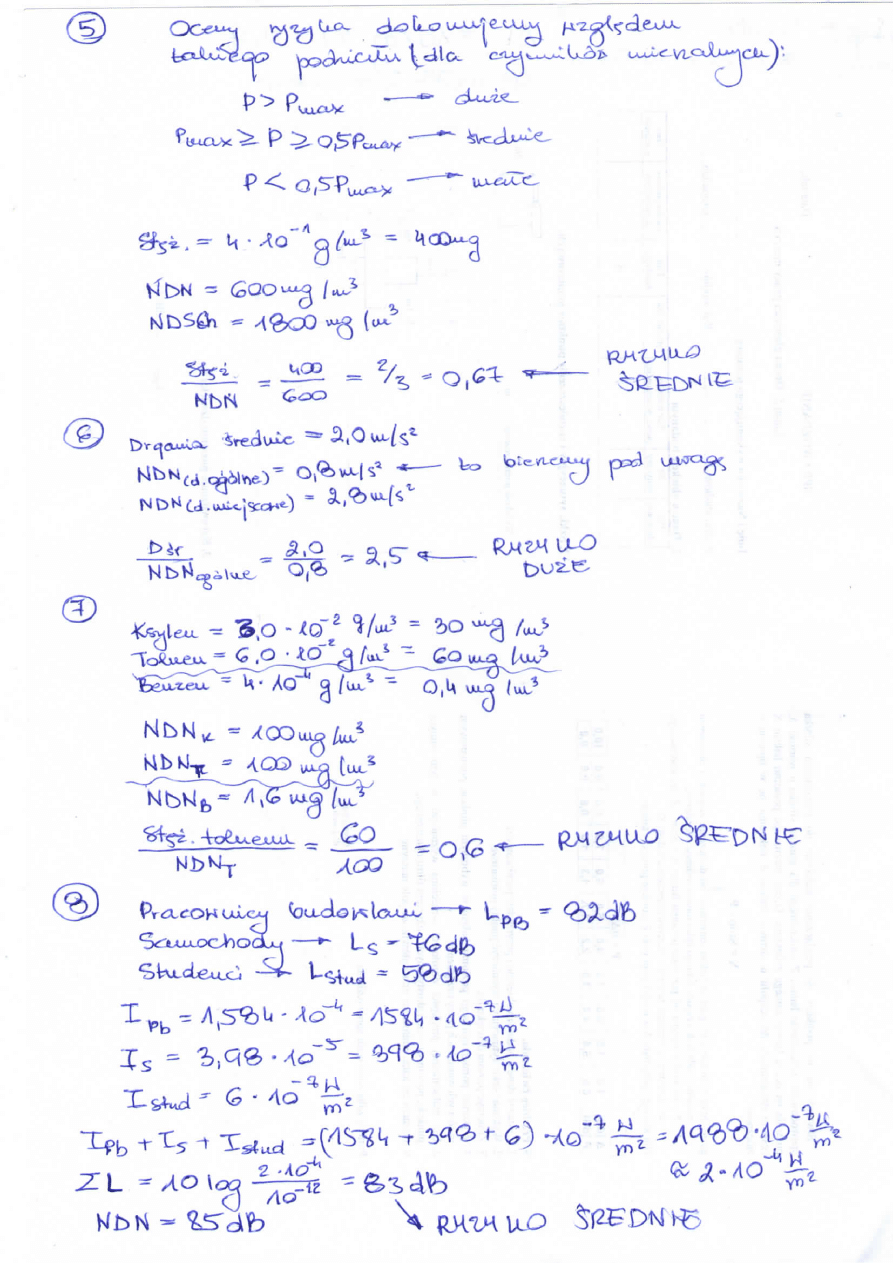 5 Oceny ryzyka dokonujemy względem
takiego podziału (dla czynników mierzalnych):
P > Pmax → duże
Pmax ≥ P ≥ 0,5Pmax → średnie
P < 0,5Pmax → małe
Stęż. = 4 · 10⁻¹ g/m³ = 400mg
NDN = 600 mg/m³
NDSCh = 1800 mg/m³
Stęż./NDN = 400/600 = 2/3 = 0,67 ← RYZYKO ŚREDNIE
6 Drgania średnie = 2,0 m/s²
NDN(d.ogólne) = 0,8 m/s² ← to bierzemy pod uwagę
NDN(d.miejscowe) = 2,8 m/s²
Dśr/NDNogólne = 2,0/0,8 = 2,5 ← RYZYKO DUŻE
7 Ksylen = 3,0 · 10⁻² g/m³ = 30 mg/m³
Toluen = 6,0 · 10⁻² g/m³ = 60 mg/m³
Benzen = 4 · 10⁻⁴ g/m³ = 0,4 mg/m³
NDNK = 100 mg/m³
NDNT = 100 mg/m³
NDNB = 1,6 mg/m³
Stęż. toluenu/NDNT = 60/100 = 0,6 ← RYZYKO ŚREDNIE
8 Pracownicy budowlani → LPB = 82dB
Samochody → LS = 76dB
Studenci → LStud = 58dB
IPb = 1,584 · 10⁻⁴ = 1584 · 10⁻⁷ W/m²
IS = 3,98 · 10⁻⁵ = 398 · 10⁻⁷ W/m²
Istud = 6 · 10⁻⁷ W/m²
IPb + IS + Istud = (1584 + 398 + 6) · 10⁻⁷ W/m² = 1988 · 10⁻⁷ W/m²
≈ 2 · 10⁻⁴ W/m²
ΣL = 10 log 2·10⁻⁴/10⁻¹² = 83 dB
NDN = 85 dB ↘ RYZYKO ŚREDNIE